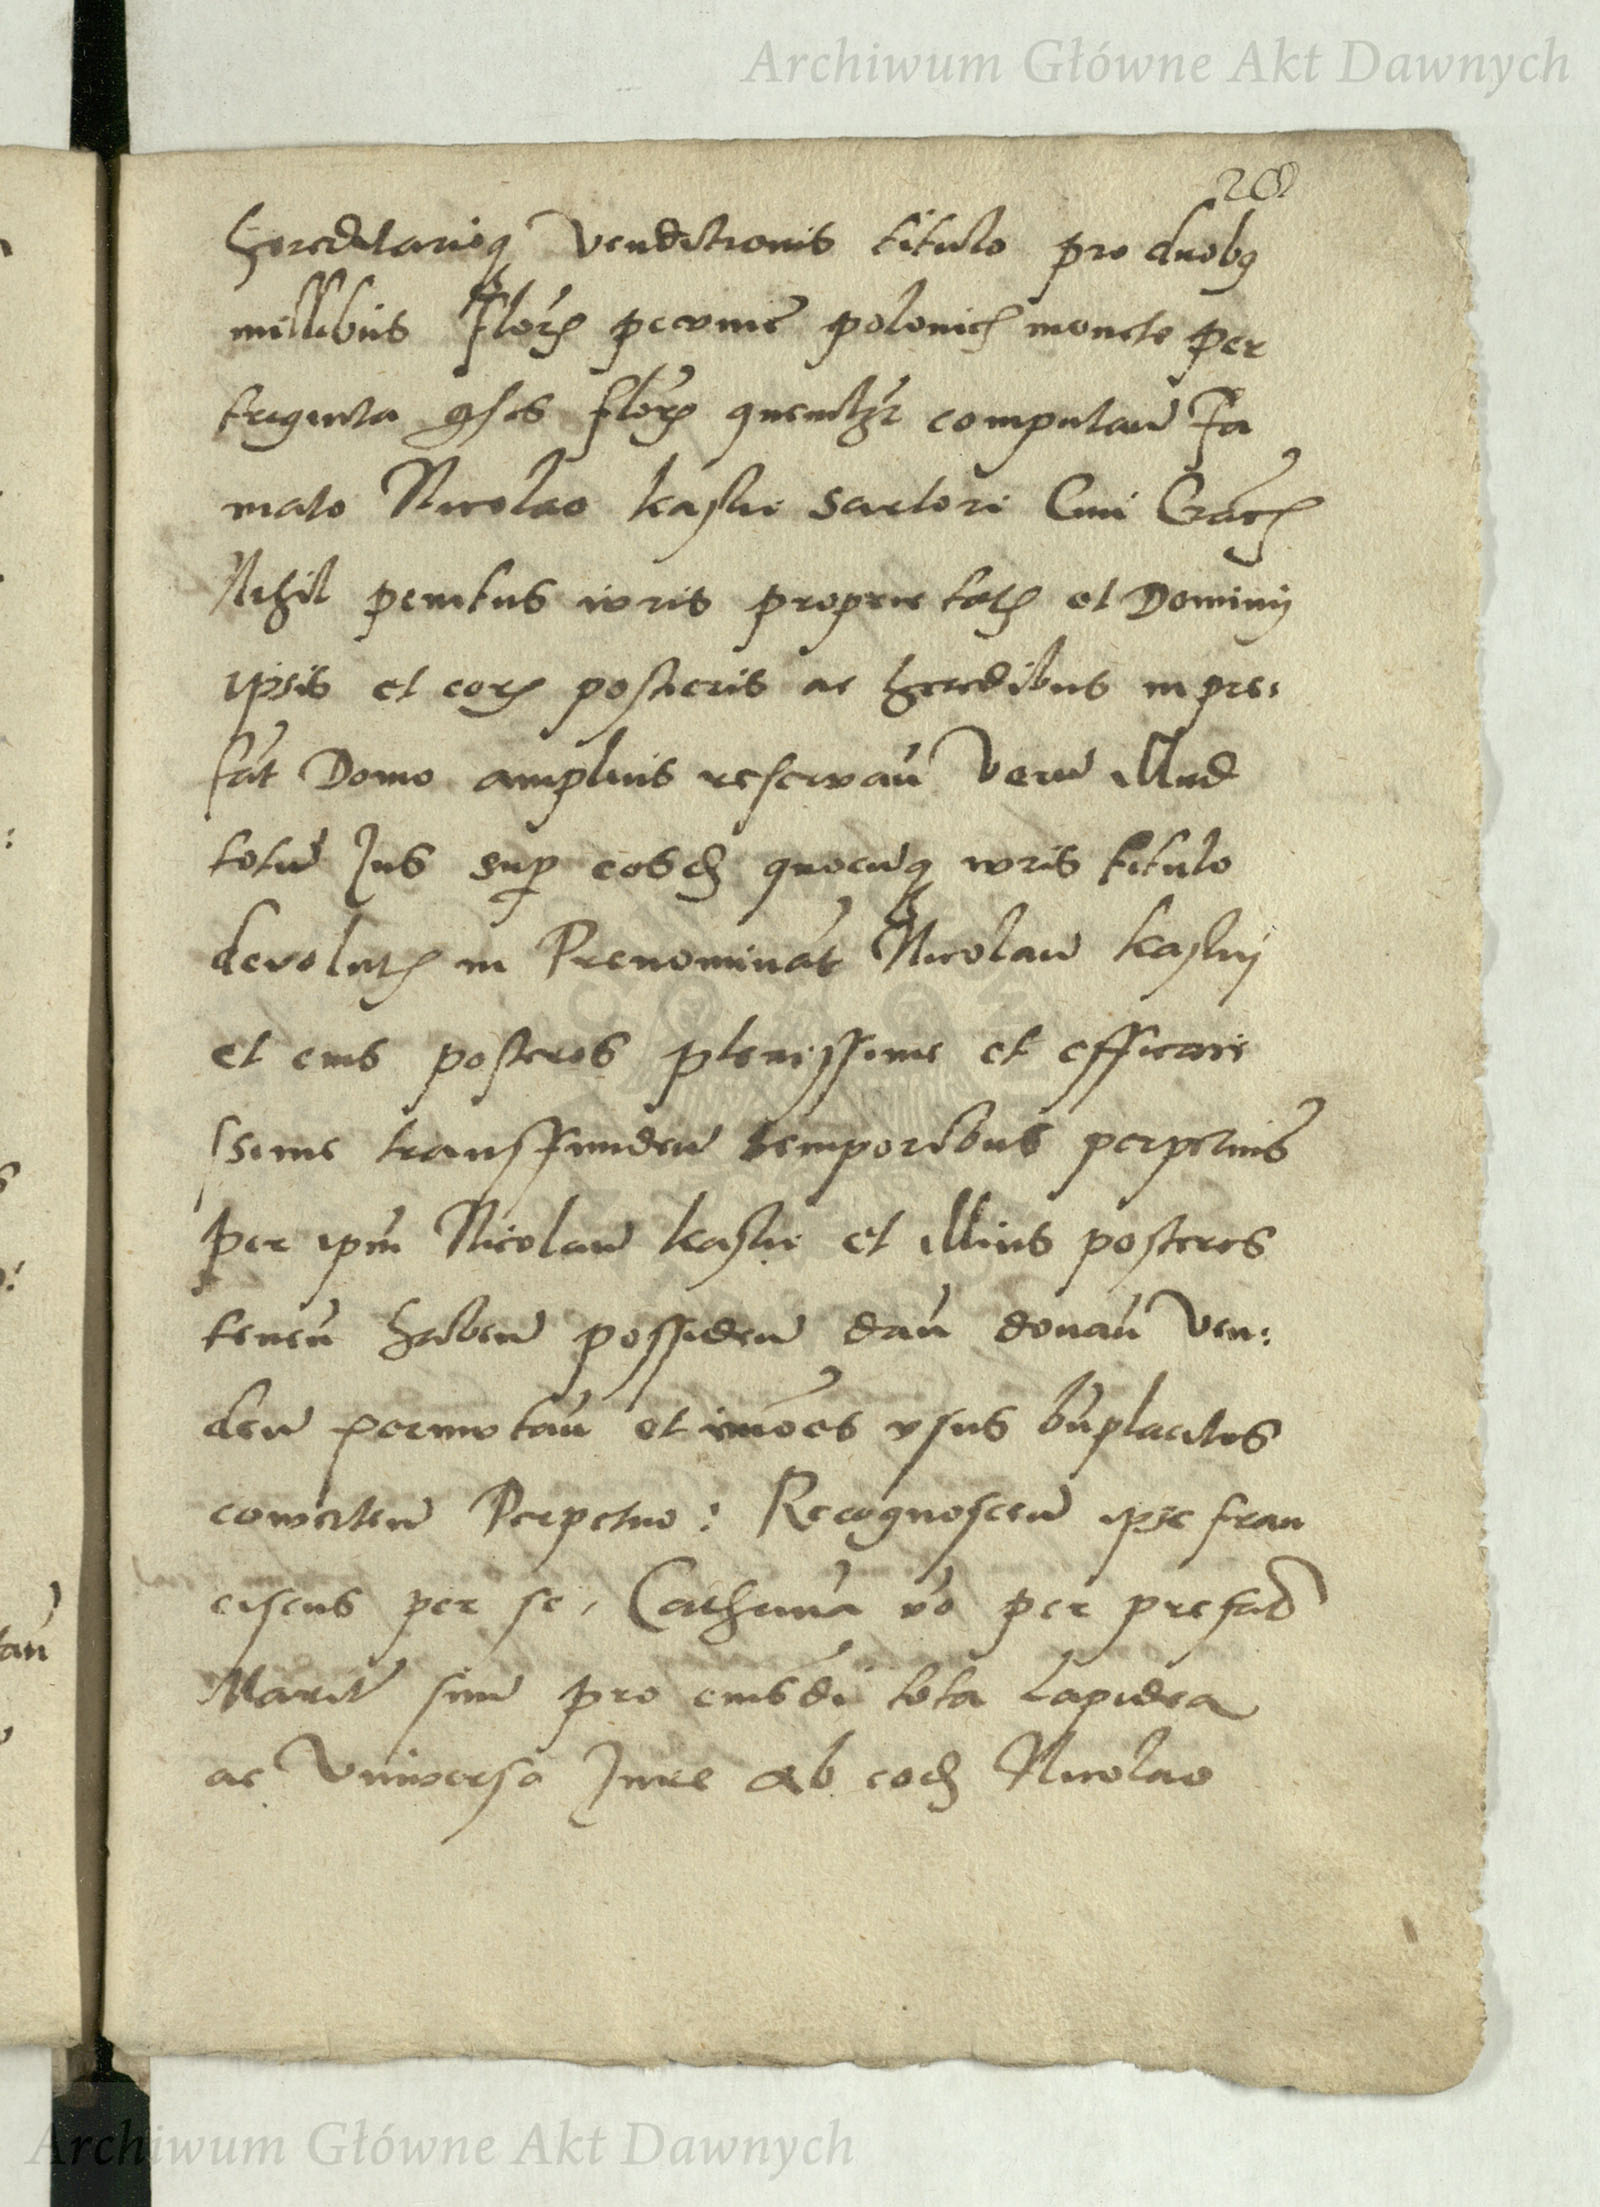 Archiwum Główne Akt Dawnych
20
hereditarioq venditionis titulo pro duobq
millibus Florꝝ pecunie polonicꝭ monete per
triginta gſos florꝝ quemlꝫt computan̄ Fa
mato Nicolao kaſlie sartori Ciui Craccꝭ
Nihil penitus iuris proprietatꝭ et Dominij
ipsis et eorꝝ posteris ac heredibus in pre:
fat Domo amplius reseruan̄ Verū illud
totū Jus sup eosdꝫ quocūq iuris titulo
devolutꝭ in Prenominat Nicolaū kaslij
et eius posteros plenissime et efficaci
ssime transfunden̄ temporibus perpetuis
per ipm̄ Nicolaū kaslie et illius posteros
tenen̄ haben̄ possiden̄ dan̄ donan̄ Ven:
den̄ permutan̄ et in oēs vsus bn̄placitos
conuerten̄ Perpetuo: Recognoscen̄ ipse fran
ciscus per se, Catharina vō per prefatū
Maritū suū pro eiusdī tota Lapidea
ac Vniuerso Jure ab eodꝫ Nicolao
Archiwum Główne Akt Dawnych